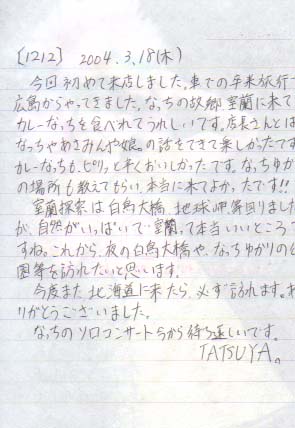 [1212] 2004.3.18(木)
今回初めて来店しました。車での卒業旅行で
広島からやってきました。なっちの故郷室蘭に来て
カレーなっちを食べれてうれしいです。店長さんとは
なっちゃあさみんや娘。の話をできて楽しかったです
カレーなっちも、ピリッと辛くおいしかったです。なっちゆかり
の場所も教えてもらい、本当に来てよかったです!!
室蘭探索は白鳥大橋、地球岬等回りました
が、自然がいっぱいで室蘭って本当いいところで
すね。これから、夜の白鳥大橋や、なっちゆかりの公
園等を訪れたいと思います。
今度また北海道に来たら、必ず訪れます。あ
りがとうございました。
なっちのソロコンサート今から待ち遠しいです。
TATSUYA。